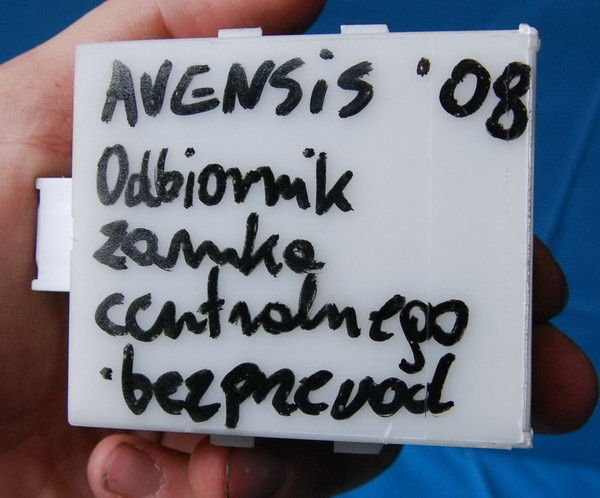 AVENSiS '08
Odbiornik
zamka
centralnego
·bezprzewod